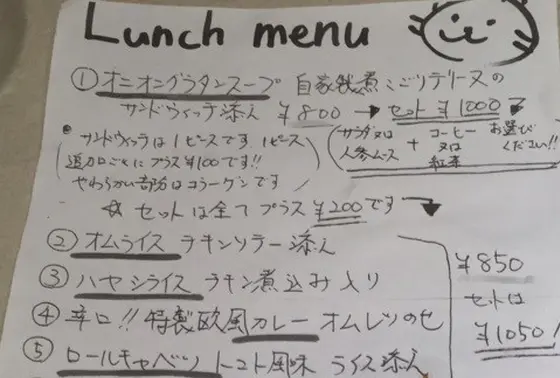 Lunch menu
① オニオングラタンスープ 自家製煮こごりテリーヌの
サンドウィッチ添え ¥800 → セット ¥1000
• サンドウィッチは1ピースです 1ピース
追加ごとにプラス¥100です!!
やわらかい部分はコラーゲンです
(サラダ又は 人参ムース + コーヒー 又は 紅茶 お選びください!!)
☆ セットは全てプラス ¥200です
② オムライス チキンソテー添え
③ ハヤシライス チキン煮込み入り
④ 辛口!! 特製欧風カレー オムレツのせ
⑤ ロールキャベツ トマト風味 ライス添え
¥850
セットは
¥1050!